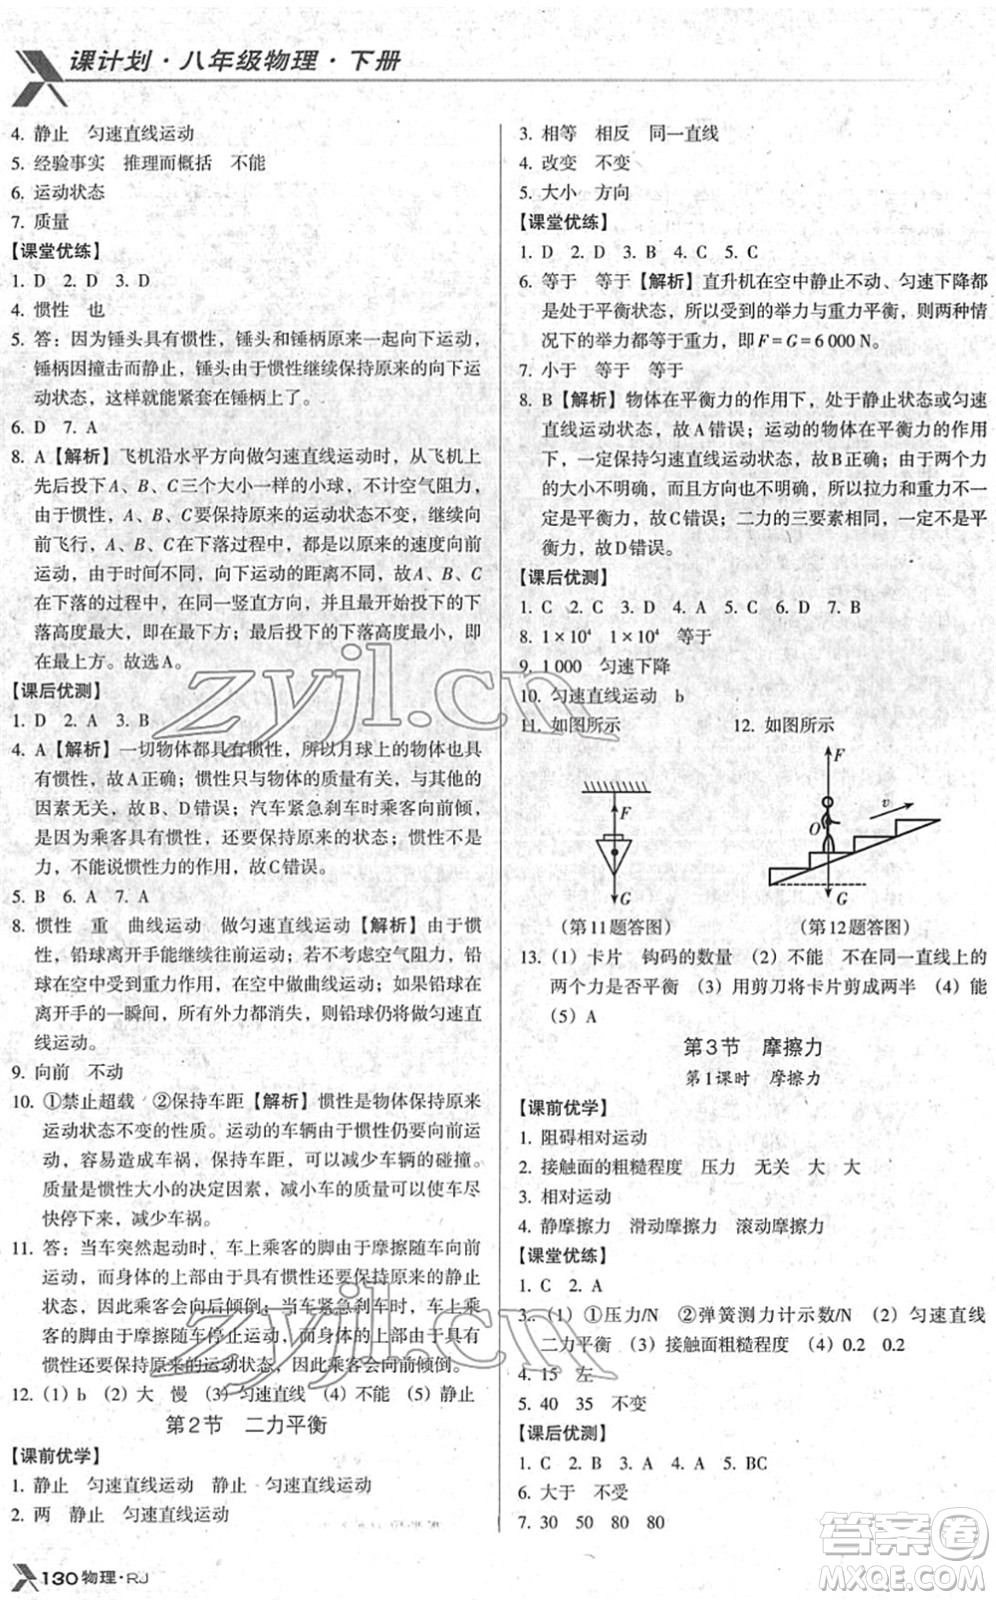 课计划·八年级物理·下册
4. 静止 匀速直线运动
5. 经验事实 推理而概括 不能
6. 运动状态
7. 质量
【课堂优练】
1. D 2. D 3. D
4. 惯性 也
5. 答：因为锤头具有惯性，锤头和锤柄原来一起向下运动，
锤柄因撞击而静止，锤头由于惯性继续保持原来的向下运
动状态，这样就能紧套在锤柄上了。
6. D 7. A
8. A【解析】飞机沿水平方向做匀速直线运动时，从飞机上
先后投下A、B、C三个大小一样的小球，不计空气阻力，
由于惯性，A、B、C要保持原来的运动状态不变，继续向
前飞行，A、B、C在下落过程中，都是以原来的速度向前
运动，由于时间不同，向下运动的距离不同，故A、B、C
在下落的过程中，在同一竖直方向，并且最开始投下的下
落高度最大，即在最下方；最后投下的下落高度最小，即
在最上方。故选A。
【课后优测】
1. D 2. A 3. B
4. A【解析】一切物体都具有惯性，所以月球上的物体也
具有惯性，故A正确；惯性只与物体的质量有关，与其他
因素无关，故B、D错误；汽车紧急刹车时乘客向前倾，
是因为乘客具有惯性，还要保持原来的运动状态。惯性不是
力，不能说惯性力的作用，故C错误。
5. B 6. A 7. A
8. 惯性 重 曲线运动 做匀速直线运动【解析】由于惯
性，铅球离开手能继续往前运动；若不考虑空气阻力，铅
球在重力作用下，在空中做曲线运动；如果铅球在
离开手的一瞬间，所有外力都消失，则铅球将做匀速直
线运动。
9. 向前 不动
10. ①禁止超载 ②保持车距【解析】惯性是物体保持原来
运动状态不变的性质。运动的车辆由于惯性仍要向前运
动，容易造成车祸，保持车距，可减少车辆的碰撞。
质量是惯性大小的决定因素，减小车的质量能使车尽
快停下来，减少车祸。
11. 答：当车突然起动时，车上乘客的脚由于摩擦随车向前
运动，而身体的上部由于具有惯性还要保持原来的静止
状态，因此乘客会向后倾倒；当车紧急刹车时，车上乘客
的脚由于摩擦随车停止运动，而身体的上部由于具有
惯性还要保持原来的运动状态，因此乘客会向前倾倒。
12. (1) b (2) 大 慢 (3) 匀速直线 (4) 不能 (5) 静止
第2节 二力平衡
【课前优学】
1. 静止 匀速直线运动 静止 匀速直线运动
2. 两 静止 匀速直线运动
3. 相等 相反 同一直线
4. 改变 不变
5. 大小 方向
【课堂优练】
1. D 2. D 3. B 4. C 5. C
6. 等于 等于【解析】直升机在空中静止不动、匀速下降都
是处于平衡状态，所以受到的举力与重力平衡，两种情况
下的举力都等于重力，即F=G=6 000 N。
7. 小于 等于 等于
8. B【解析】物体在平衡力的作用下，处于静止状态或匀速
直线运动状态，故A错误；运动的物体在平衡力的作用
下，一定保持匀速直线运动状态，故B正确；由于两个力
的大小不明确，而且方向也不明确，所以拉力和重力不一
定是平衡力，故C错误；二力的三要素相同，一定不是平
衡力，故D错误。
【课后优测】
1. C 2. C 3. C 4. A 5. C 6. D 7. B
8. 1×10⁴ 1×10⁴ 等于
9. 1 000 匀速下降
10. 匀速直线运动 b
11. 如图所示 12. 如图所示
F
G
F
O
v
G
(第11题答图) (第12题答图)
13. (1) 卡片 钩码的数量 (2) 不能 不在同一直线上的
两个力是否平衡 (3) 用剪刀将卡片剪成两半 (4) 能
(5) A
第3节 摩擦力
第1课时 摩擦力
【课前优学】
1. 阻碍相对运动
2. 接触面的粗糙程度 压力 无关 大 大
3. 相对运动
4. 静摩擦力 滑动摩擦力 滚动摩擦力
【课堂优练】
1. C 2. A
3. (1) ①压力/N ②弹簧测力计示数/N (2) 匀速直线
二力平衡 (3) 接触面粗糙程度 (4) 0.2 0.2
4. 15 左
5. 40 35 不变
【课后优测】
1. C 2. B 3. A 4. A 5. BC
6. 大于 不受
7. 30 50 80 80
130 物理·RJ
zyjl.cn
zyjl.cn
答案圈
MXQE.COM